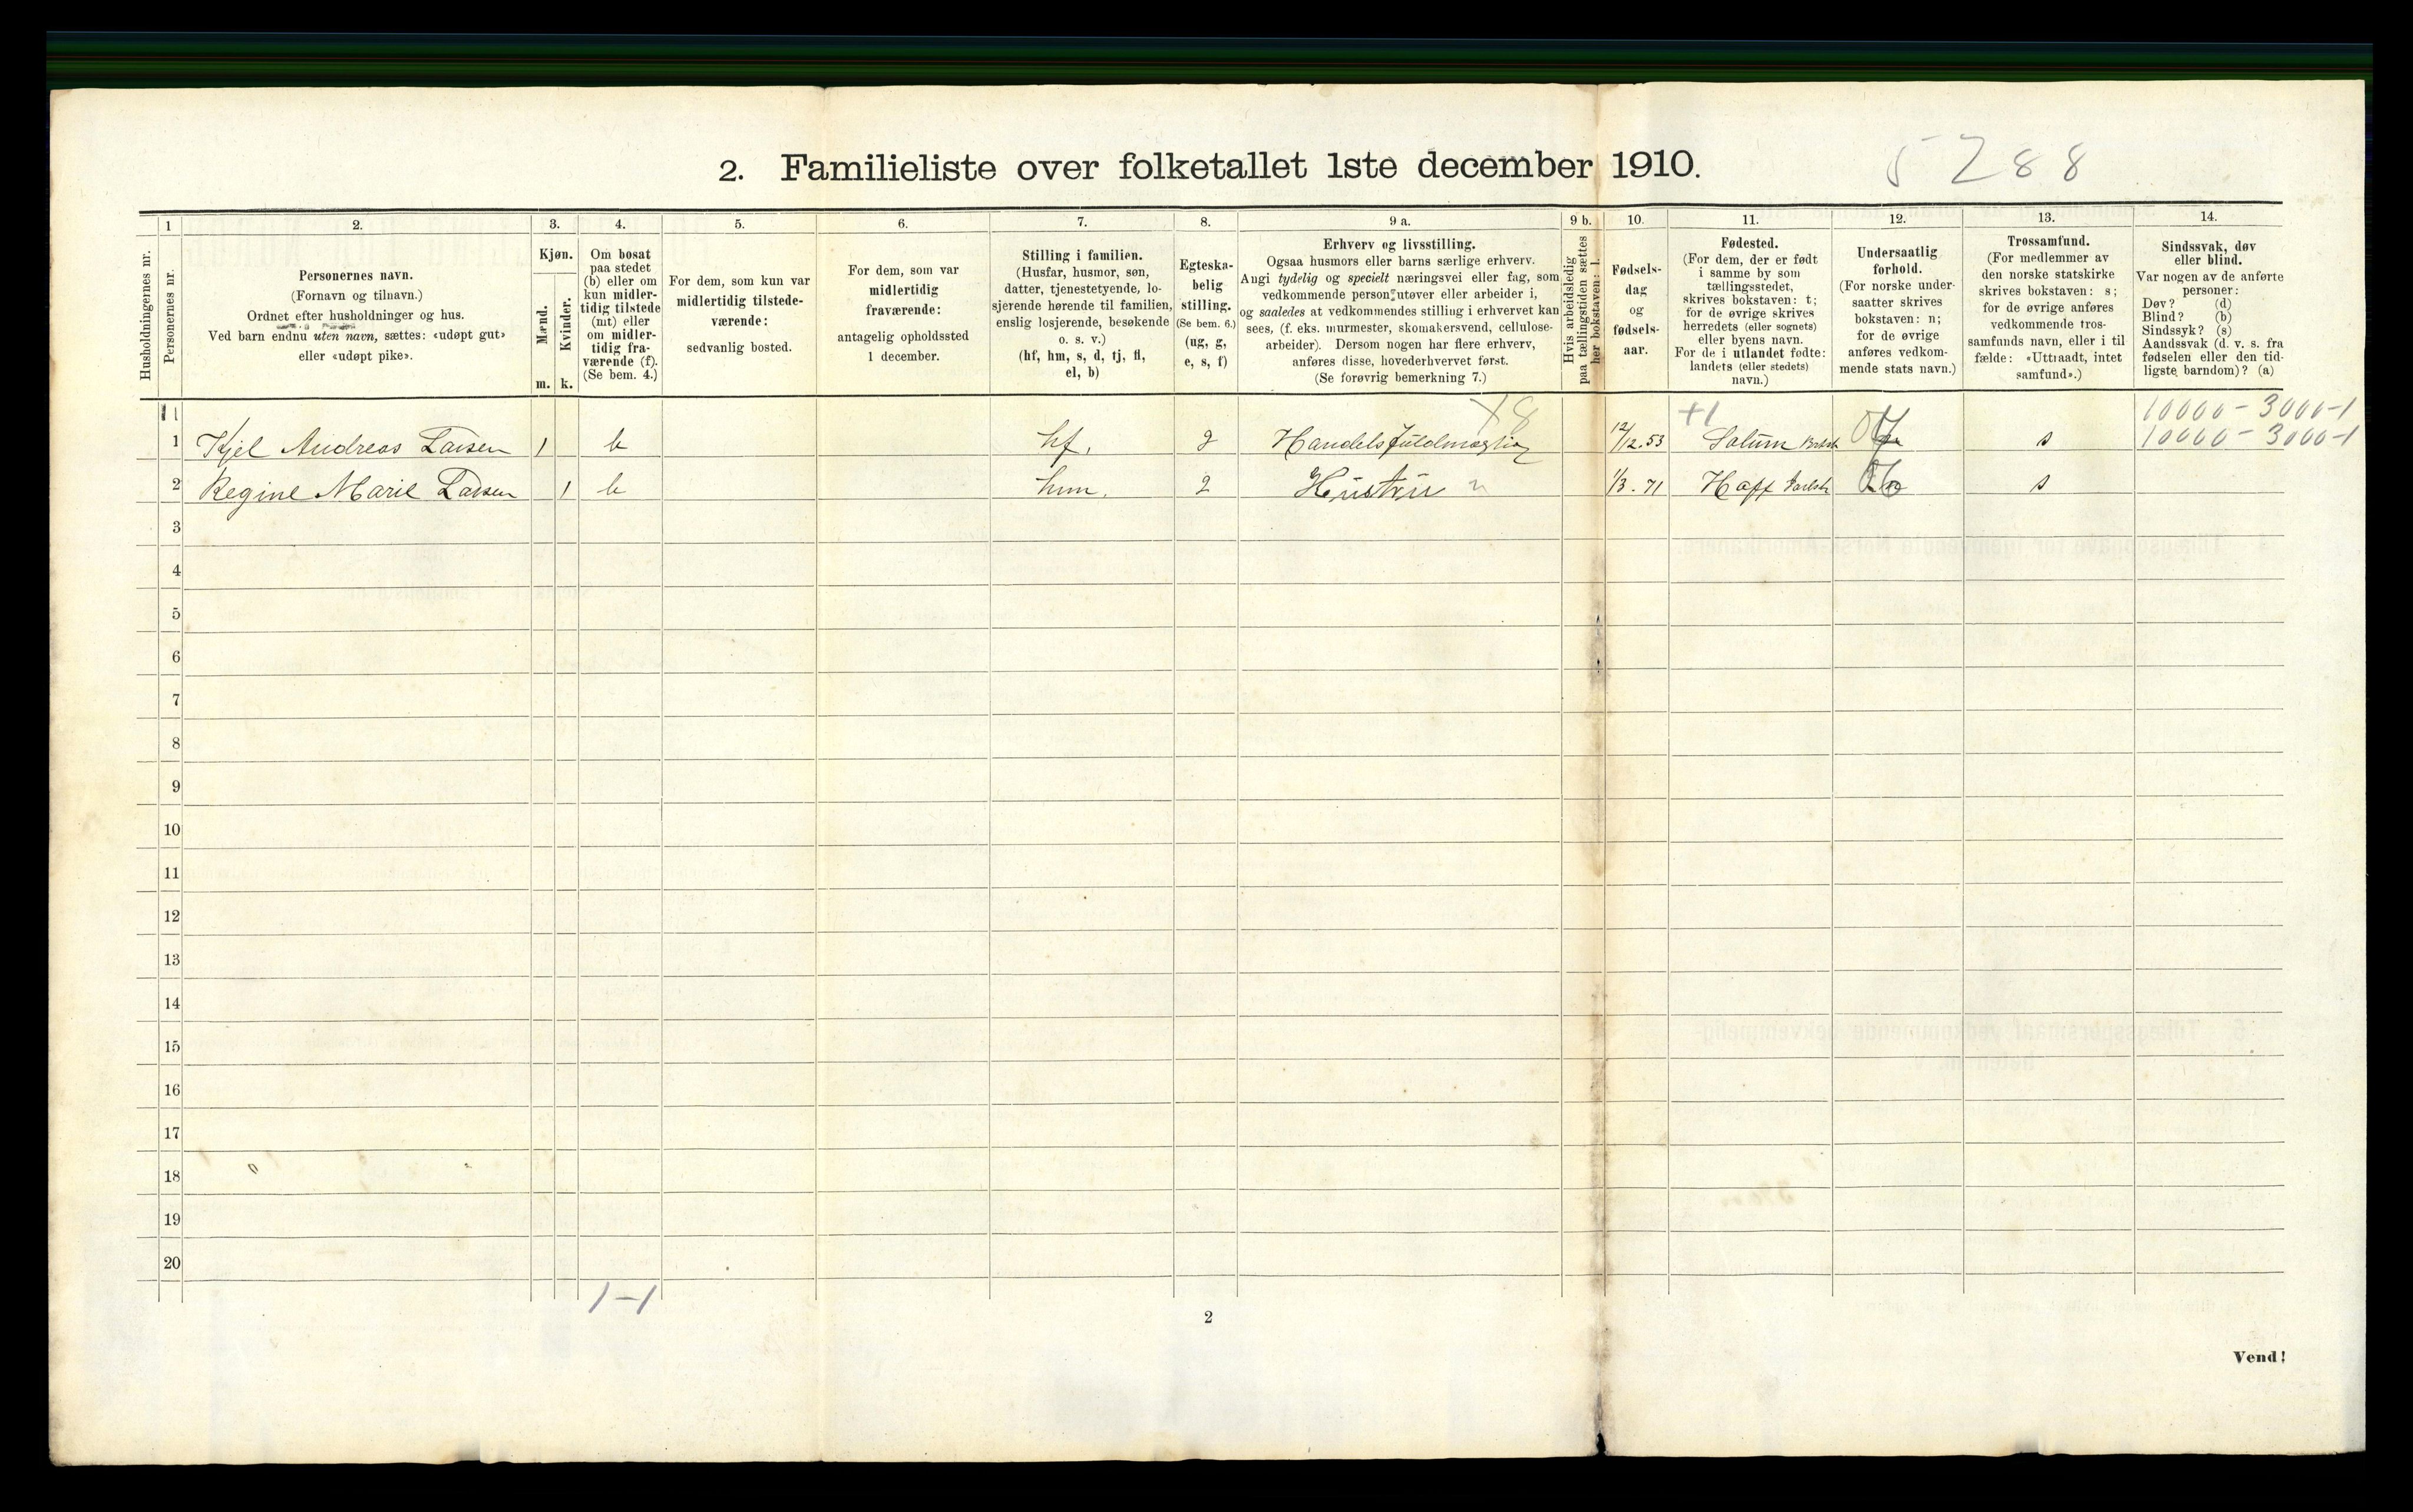 2. Familieliste over folketallet 1ste december 1910.
5288
Husholdningernes nr.
1
Personernes nr.
2.
Personernes navn.
(Fornavn og tilnavn.)
Ordnet efter husholdninger og hus.
Ved barn endnu uten navn, sættes: «udøpt gut»
eller «udøpt pike».
3.
Kjøn.
Mænd.
Kvinder.
m. k.
4.
Om bosat
paa stedet
(b) eller om
kun midler-
tidig tilstede
(mt) eller
om midler-
tidig fra-
værende (f).
(Se bem. 4.)
5.
For dem, som kun var
midlertidig tilstede-
værende:
sedvanlig bosted.
6.
For dem, som var
midlertidig
fraværende:
antagelig opholdssted
1 december.
7.
Stilling i familien.
(Husfar, husmor, søn,
datter, tjenestetyende, lo-
sjerende hørende til familien,
enslig losjerende, besøkende
o. s. v.)
(hf, hm, s, d, tj, fl,
el, b)
8.
Egteska-
belig
stilling.
(Se bem. 6.)
(ug, g,
e, s, f)
9 a.
Erhverv og livsstilling.
Ogsaa husmors eller barns særlige erhverv.
Angi tydelig og specielt næringsvei eller fag, som
vedkommende person utøver eller arbeider i,
og saaledes at vedkommendes stilling i erhvervet kan
sees, (f. eks. murmester, skomakersvend, cellulose-
arbeider). Dersom nogen har flere erhverv,
anføres disse, hovederhvervet først.
(Se forøvrig bemerkning 7.)
9 b.
Hvis arbeidsledig
paa tællingstiden sættes
her bokstaven: l.
10.
Fødsels-
dag
og
fødsels-
aar.
11.
Fødested.
(For dem, der er født
i samme by som
tællingsstedet,
skrives bokstaven: t;
for de øvrige skrives
herredets (eller sognets)
eller byens navn.
For de i utlandet fødte:
landets (eller stedets)
navn.)
12.
Undersaatlig
forhold.
(For norske under-
saatter skrives
bokstaven: n;
for de øvrige
anføres vedkom-
mende stats navn.)
13.
Trossamfund.
(For medlemmer av
den norske statskirke
skrives bokstaven: s;
for de øvrige anføres
vedkommende tros-
samfunds navn, eller i til
fælde: «Uttraadt, intet
samfund».)
14.
Sindssvak, døv
eller blind.
Var nogen av de anførte
personer:
Døv? (d)
Blind? (b)
Sindssyk? (s)
Aandssvak (d. v. s. fra
fødselen eller den tid-
ligste barndom)? (a)
+8 +1 10000-3000-1
1 Kjel Andreas Larsen 1 b hf. g Handelsfuldmægtig 12/12.53 Solum s 10000-3000-1
2 Regine Marie Larsen 1 b hm. g Hustru 1/3.71 s
3
4
5
6
7
8
9
10
11
12
13
14
15
16
17
18
19
20
1-1
2
Vend!